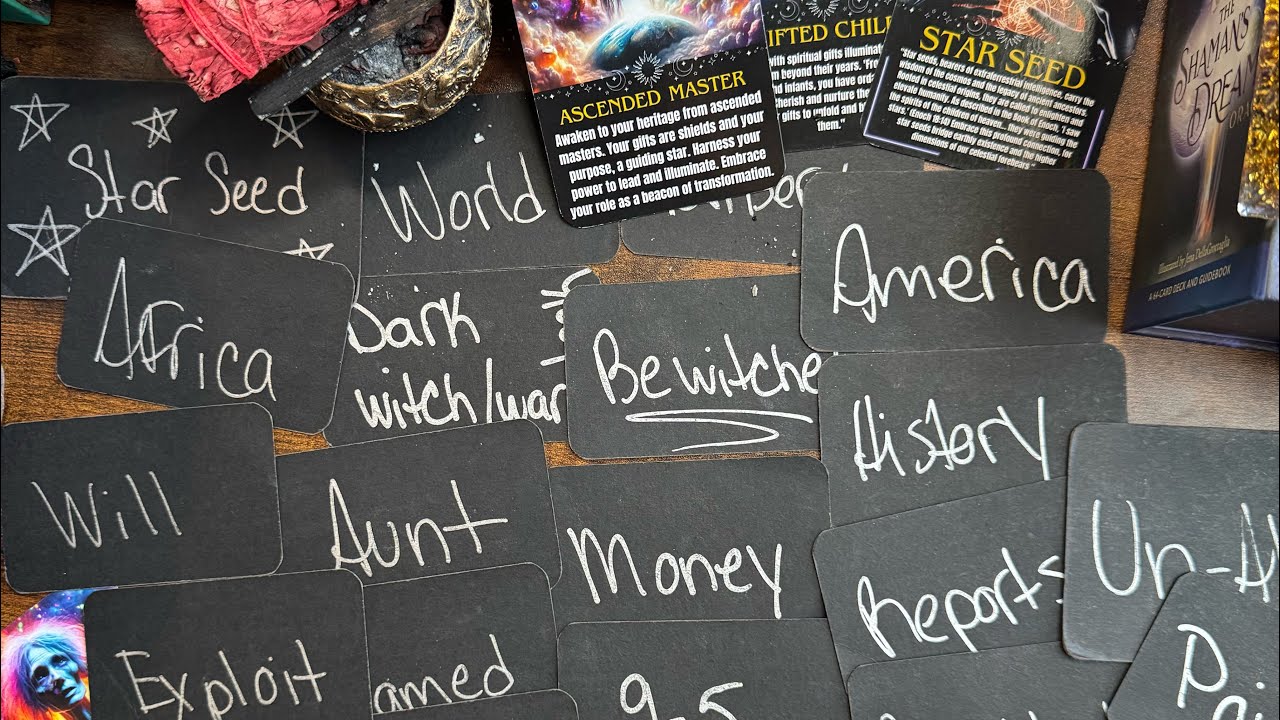 ASCENDED MASTER
Awaken to your heritage from ascended
masters. Your gifts are shields and your
purpose, a guiding star. Harness your
power to lead and illuminate. Embrace
your role as a beacon of transformation.
IFTED CHIL
with spiritual gifts illuminat
beyond their years. "Fr
and infants, you have ord
cherish and nurture the
gifts to unfold and b
them."
STAR SEED
"Star seeds, bearers of extraterrestrial intelligence, carry the
wisdom of the cosmos and the legacy of ancient ancestry.
Rooted in celestial origins, they are called to enlighten and
elevate humanity. As described in the Book of Enoch, 'I saw
the spirits of the children of heaven...
(Enoch 19:14) Embrace this profound connection,
star seeds bridge earthly existence and the higher
dimensions of our celestial
THE
SHAMAN'S
DREAM
Illustrated by
A 64-CARD DECK AND GUIDEBOOK
Star Seed
World
America
Africa
Dark
witch/war
Bewitche
History
Will
Aunt
Money
Reports
Un-A
Exploit
amed
9-5